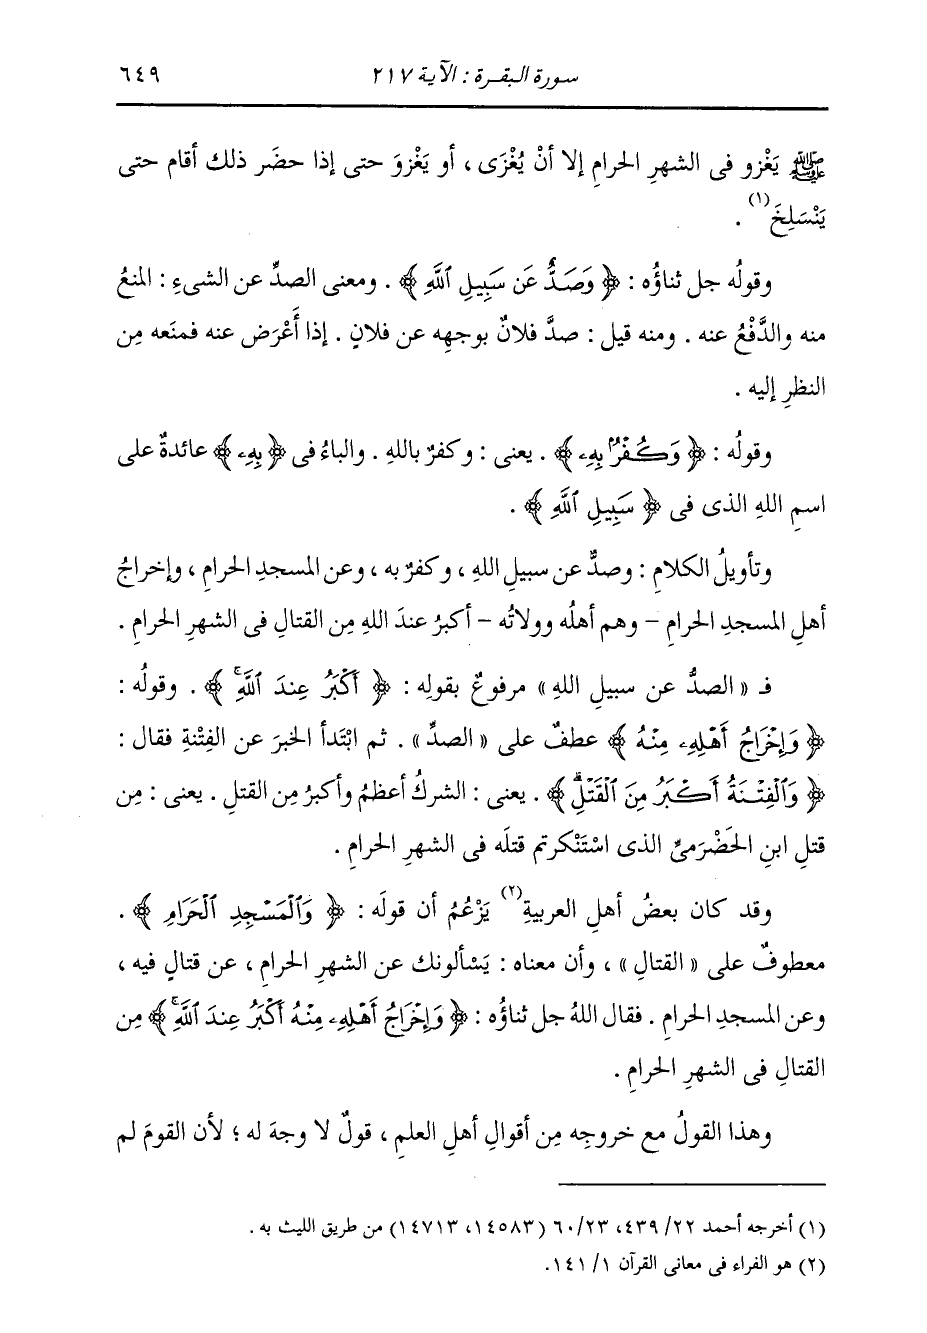 سورة البقرة : الآية ٢١٧ ٦٤٩
ﷺ يَغْزو فى الشهرِ الحرامِ إلا أنْ يُغْزَى ، أو يَغْزوَ حتى إذا حضَر ذلك أقام حتى
يَنْسَلِخَ(١) .
وقولُه جل ثناؤُه : ﴿ وَصَدٌّ عَن سَبِيلِ ٱللَّهِ ﴾ . ومعنى الصدِّ عن الشىءِ : المنعُ
منه والدَّفْعُ عنه . ومنه قيل : صدَّ فلانٌ بوجهِه عن فلانٍ . إذا أَعْرَض عنه فمنَعه مِن
النظرِ إليه .
وقولُه : ﴿ وَكُفْرٌۢ بِهِۦ ﴾ . يعنى : وكفرٌ باللهِ . والباءُ فى ﴿ بِهِۦ ﴾ عائدةٌ على
اسمِ اللهِ الذى فى ﴿ سَبِيلِ ٱللَّهِ ﴾ .
وتأويلُ الكلامِ : وصدٌّ عن سبيلِ اللهِ ، وكفرٌ به ، وعن المسجدِ الحرامِ ، وإخراجُ
أهلِ المسجدِ الحرامِ – وهم أهلُه وولاتُه – أكبرُ عندَ اللهِ مِن القتالِ فى الشهرِ الحرامِ .
فـ « الصدُّ عن سبيلِ اللهِ » مرفوعٌ بقولِه : ﴿ أَكْبَرُ عِندَ ٱللَّهِۚ ﴾ . وقولُه :
﴿ وَإِخْرَاجُ أَهْلِهِۦ مِنْهُ ﴾ عطفٌ على « الصدِّ » . ثم ابْتَدأ الخبرَ عن الفِتْنةِ فقال :
﴿ وَٱلْفِتْنَةُ أَكْبَرُ مِنَ ٱلْقَتْلِۗ ﴾ . يعنى : الشركُ أعظمُ وأكبرُ مِن القتلِ . يعنى : مِن
قتلِ ابنِ الحَضْرَمىِّ الذى اسْتَنْكرتم قتلَه فى الشهرِ الحرامِ .
وقد كان بعضُ أهلِ العربيةِ(٢) يَزْعُمُ أن قولَه : ﴿ وَٱلْمَسْجِدِ ٱلْحَرَامِ ﴾ .
معطوفٌ على « القتالِ » ، وأن معناه : يَسْألونك عن الشهرِ الحرامِ ، عن قتالٍ فيه ،
وعن المسجدِ الحرامِ . فقال اللهُ جل ثناؤُه : ﴿ وَإِخْرَاجُ أَهْلِهِۦ مِنْهُ أَكْبَرُ عِندَ ٱللَّهِۚ ﴾ مِن
القتالِ فى الشهرِ الحرامِ .
وهذا القولُ مع خروجِه مِن أقوالِ أهلِ العلمِ ، قولٌ لا وجهَ له ؛ لأن القومَ لم
(١) أخرجه أحمد ٢٢/ ٤٣٩، ٦٠/٢٣ (١٤٥٨٣، ١٤٧١٣) من طريق الليث به .
(٢) هو الفراء فى معانى القرآن ١/ ١٤١.